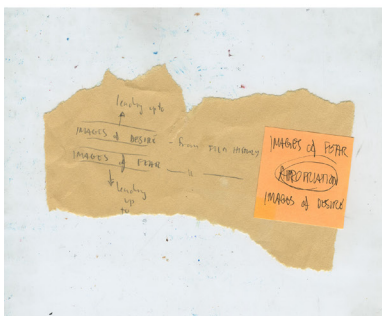 leading up to
IMAGES of DESIRE - from FILM HISTORY
IMAGES of FEAR — " —
leading
up
to
IMAGES of FEAR
IMAGES of DESIRE